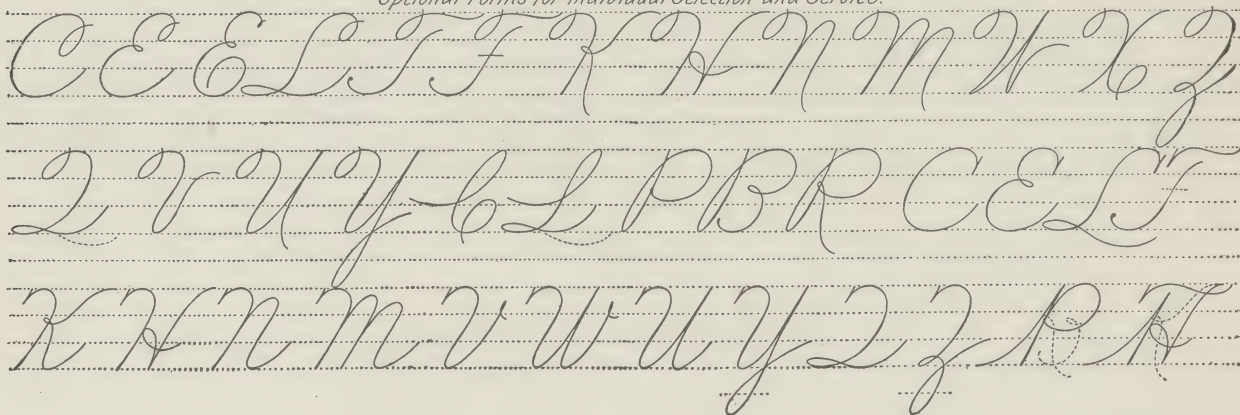 Optional Forms for Individual Selection and Service.
C E E L T F K H N M W X Z
Q V U Y C L P B R C E L F
K H N M V W U Y Q Z R